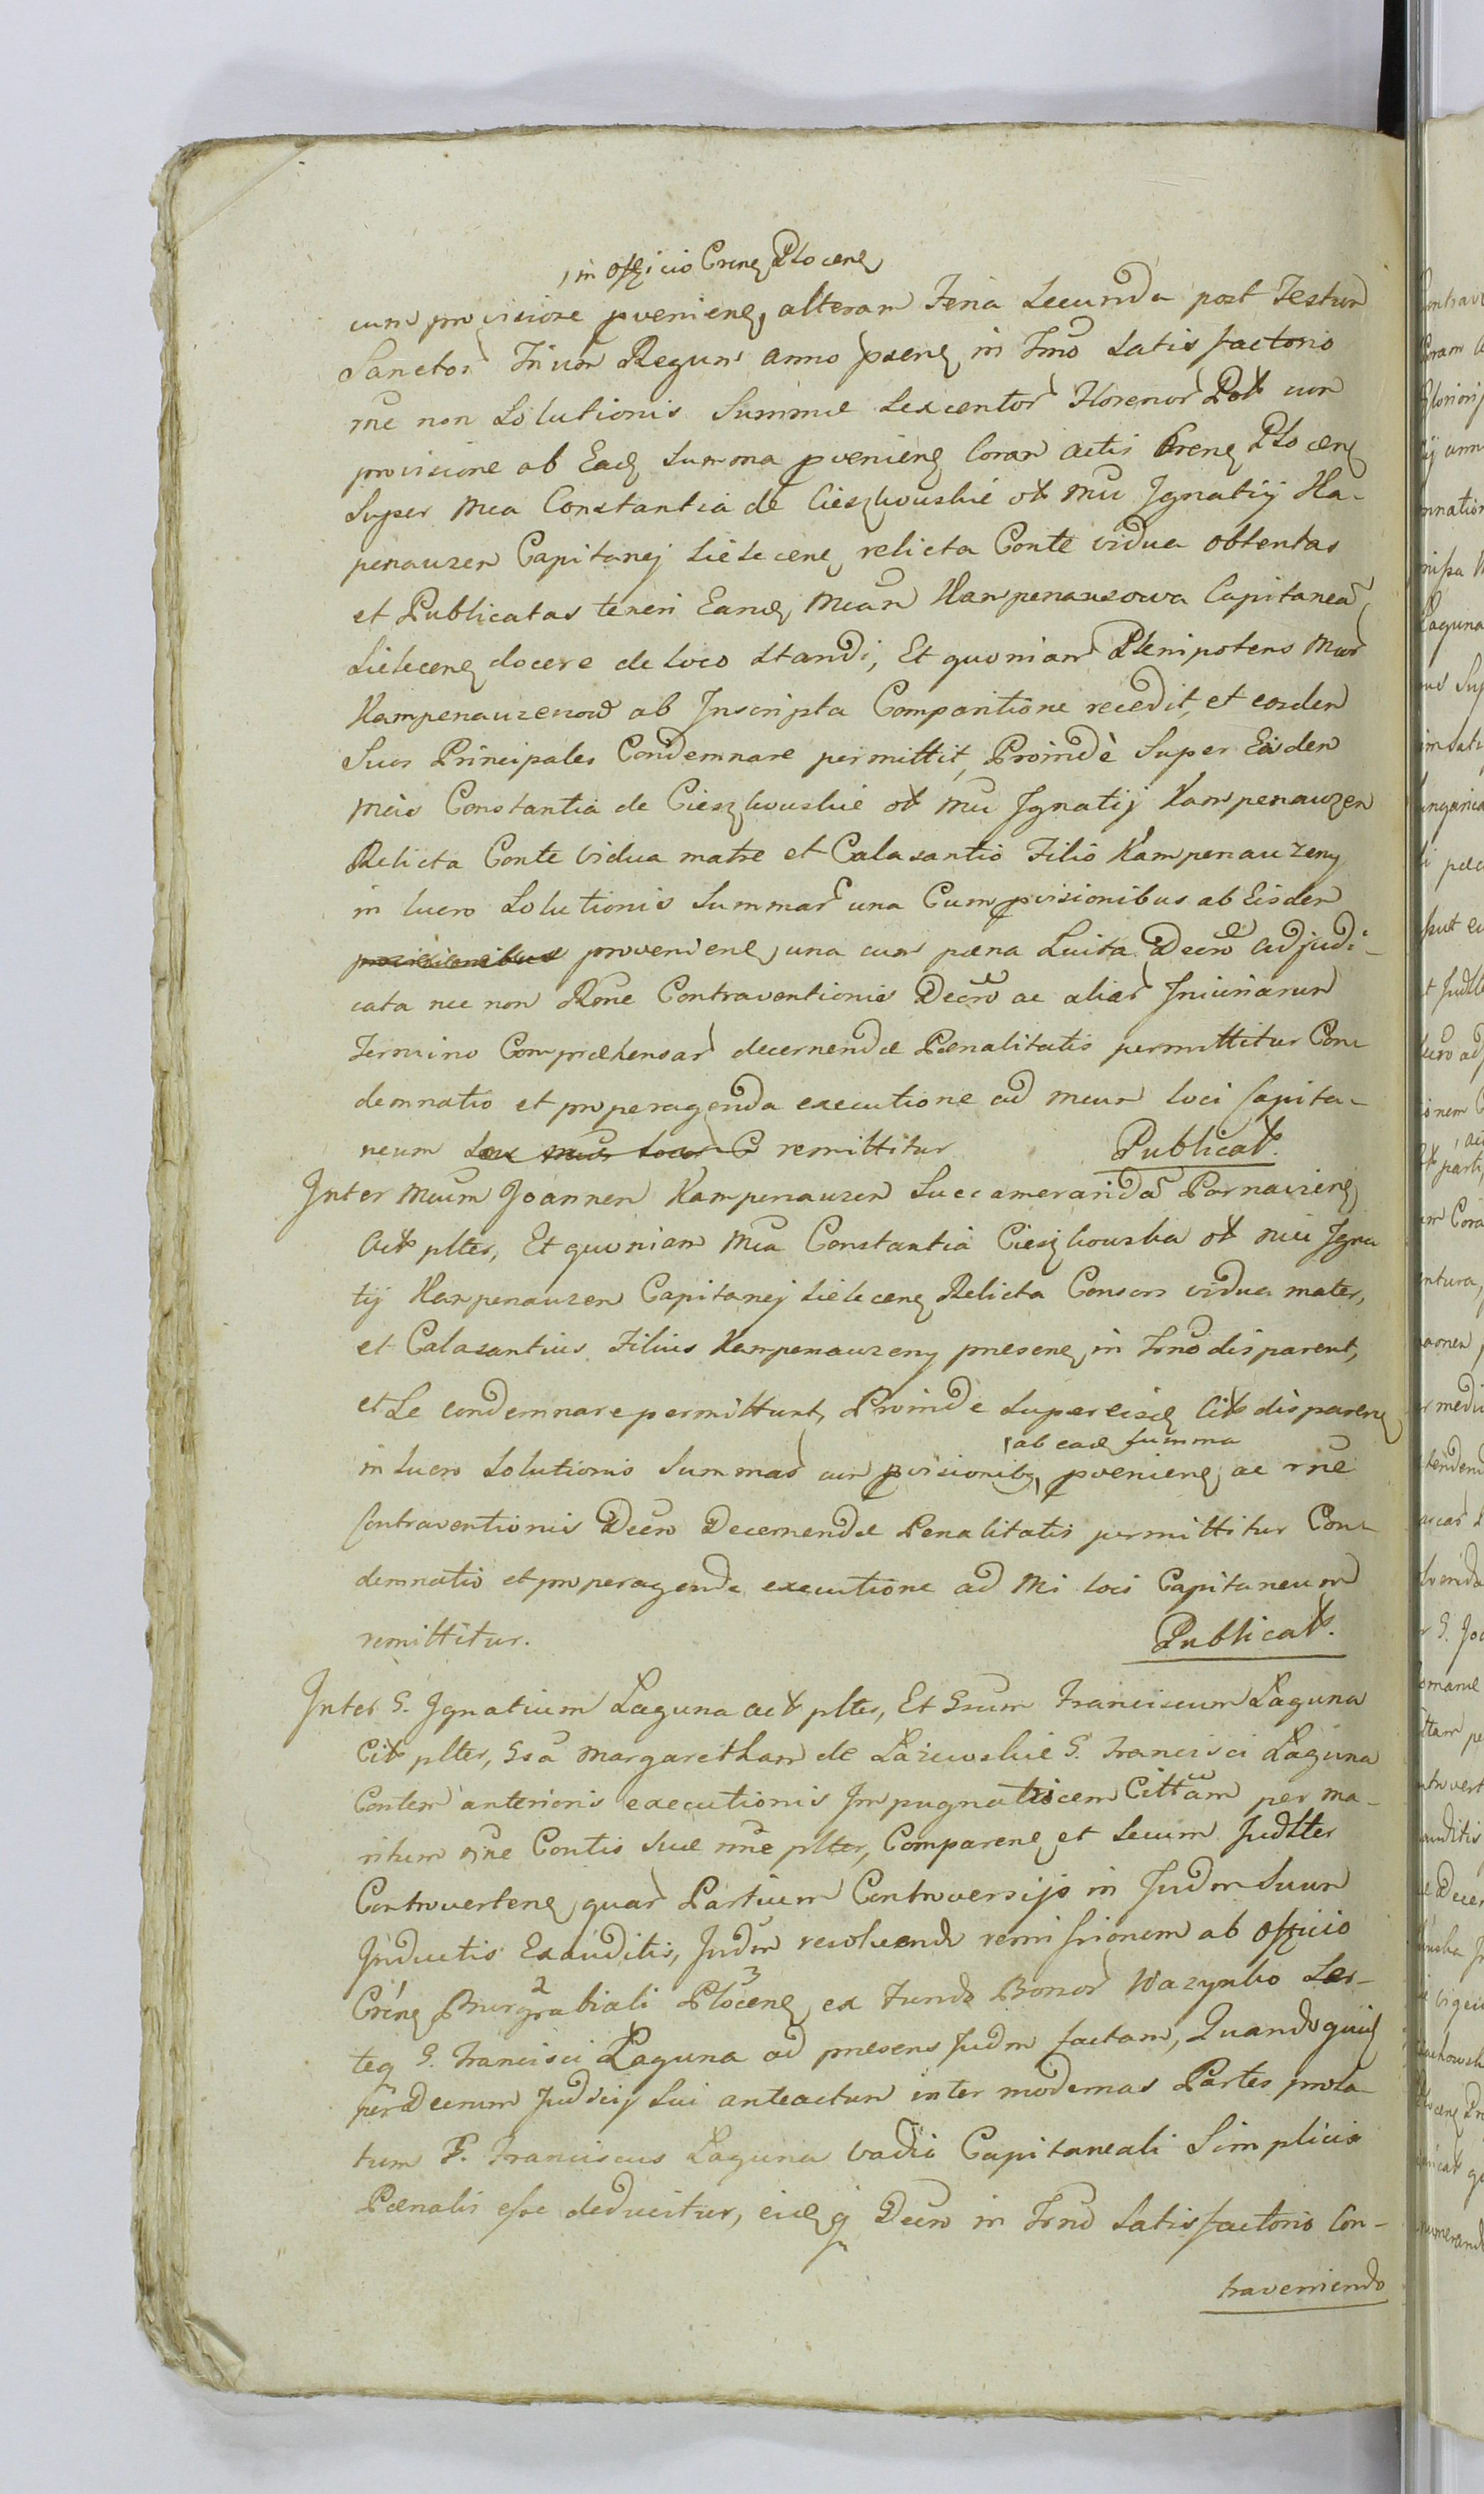 , in officio Crenȩ Plocenȩ
cum provisione pvenienȩ, alteram Feria Secunda post Festum
Sanctor Trium Regum anno psenȩ in Trno Satisfactorio
rne non Solutionis Summæ Sexcentor Florenor Pol cum
provisione ab Eadȩ Summa pvenienȩ Coram actis Crenȩ Plocenȩ
Super Mca Constantia de Cieszkouskie ol Mci Ignatij Ka-
penauzen Capitanej Sielecenȩ relicta Conte vidua obtentas
et Publicatas teneri Eandȩ Mcam Kampenauzowa Capitanea
Sielecenȩ docere de loco Standi, Et quoniam Plenipotens Mcor
Kampenauzenow ab Inscripta Comparitione recedit, et eosdem
Suos Principales Condemnare permittit, Proindè Super Eisdem
Mcis Constantia de Cieszkouskie ol Mci Ignatij Kampenauzen
Relicta Conte Vidua matre et Calasantio Filio Kampenauzeny
in lucro Solutionis Summar una Cum pvisionibus ab Eisdem
provisionibus provenienȩ, una cum pæna Luita Decro adjudi-
cata nec non Rone Contraventionis Decro ac aliar Iniuriarum
Termino Comprehensar decernendæ Pænalitatis permittitur Con-
demnatio et pro peragenda executione ad Mcum loci Capita-
neum remittitur Publicat.
Inter Mcum Joannem Kampenauzen Succamerarida Parnavienȩ
Act plter, Et quoniam Mca Constantia Cieszkouska ol Mci Igna
tij Kampenauzen Capitanej Sielecenȩ Relicta Consors vidua mater,
et Calasantius Filius Kampenauzeny presenȩ in Trno disparent,
et Se condemnare permittunt, Proinde Super eisdȩ Cit disparenȩ
, ab eadȩ Summa
in lucro Solutionis Summar cum pvisionibȩ, pvenienȩ ac rne
Contraventionis Decro Decernendæ Penalitatis permittitur Con-
demnatio et pro peragenda executione ad Mi loci Capitaneum
remittitur. Publicat.
Inter G. Ignatium Laguna act plter, Et Gsum Franciscum Laguna
Cit plter, Gsa Margaretham de Lazewskie G. Francisci Laguna
Contem anterioris executionis Impugnatricem Cittam per ma-
ritum ne Contis Suæ rne plter, Comparenȩ et Secum Judlter
Controvertenȩ, quar Partium Controversijs in Judm Suum
Inductis Exauditis, Judm resolvendo remissionem ab officio
Crenȩ Burgrabiali Plocenȩ, ex Fundo Bonor Wazynko Ser-
2 3
teȩ G. Francisci Laguna ad presens Judm factam, Quandoquidȩ
per Decrum Judicij Sui anteactum inter modernas Partes prola-
tum G. Franciscus Laguna vadio Capitaneali Simplicia
Pænalis esse deducitur, eidȩq Decro in Trno Satisfactorio Con-
traveniendo